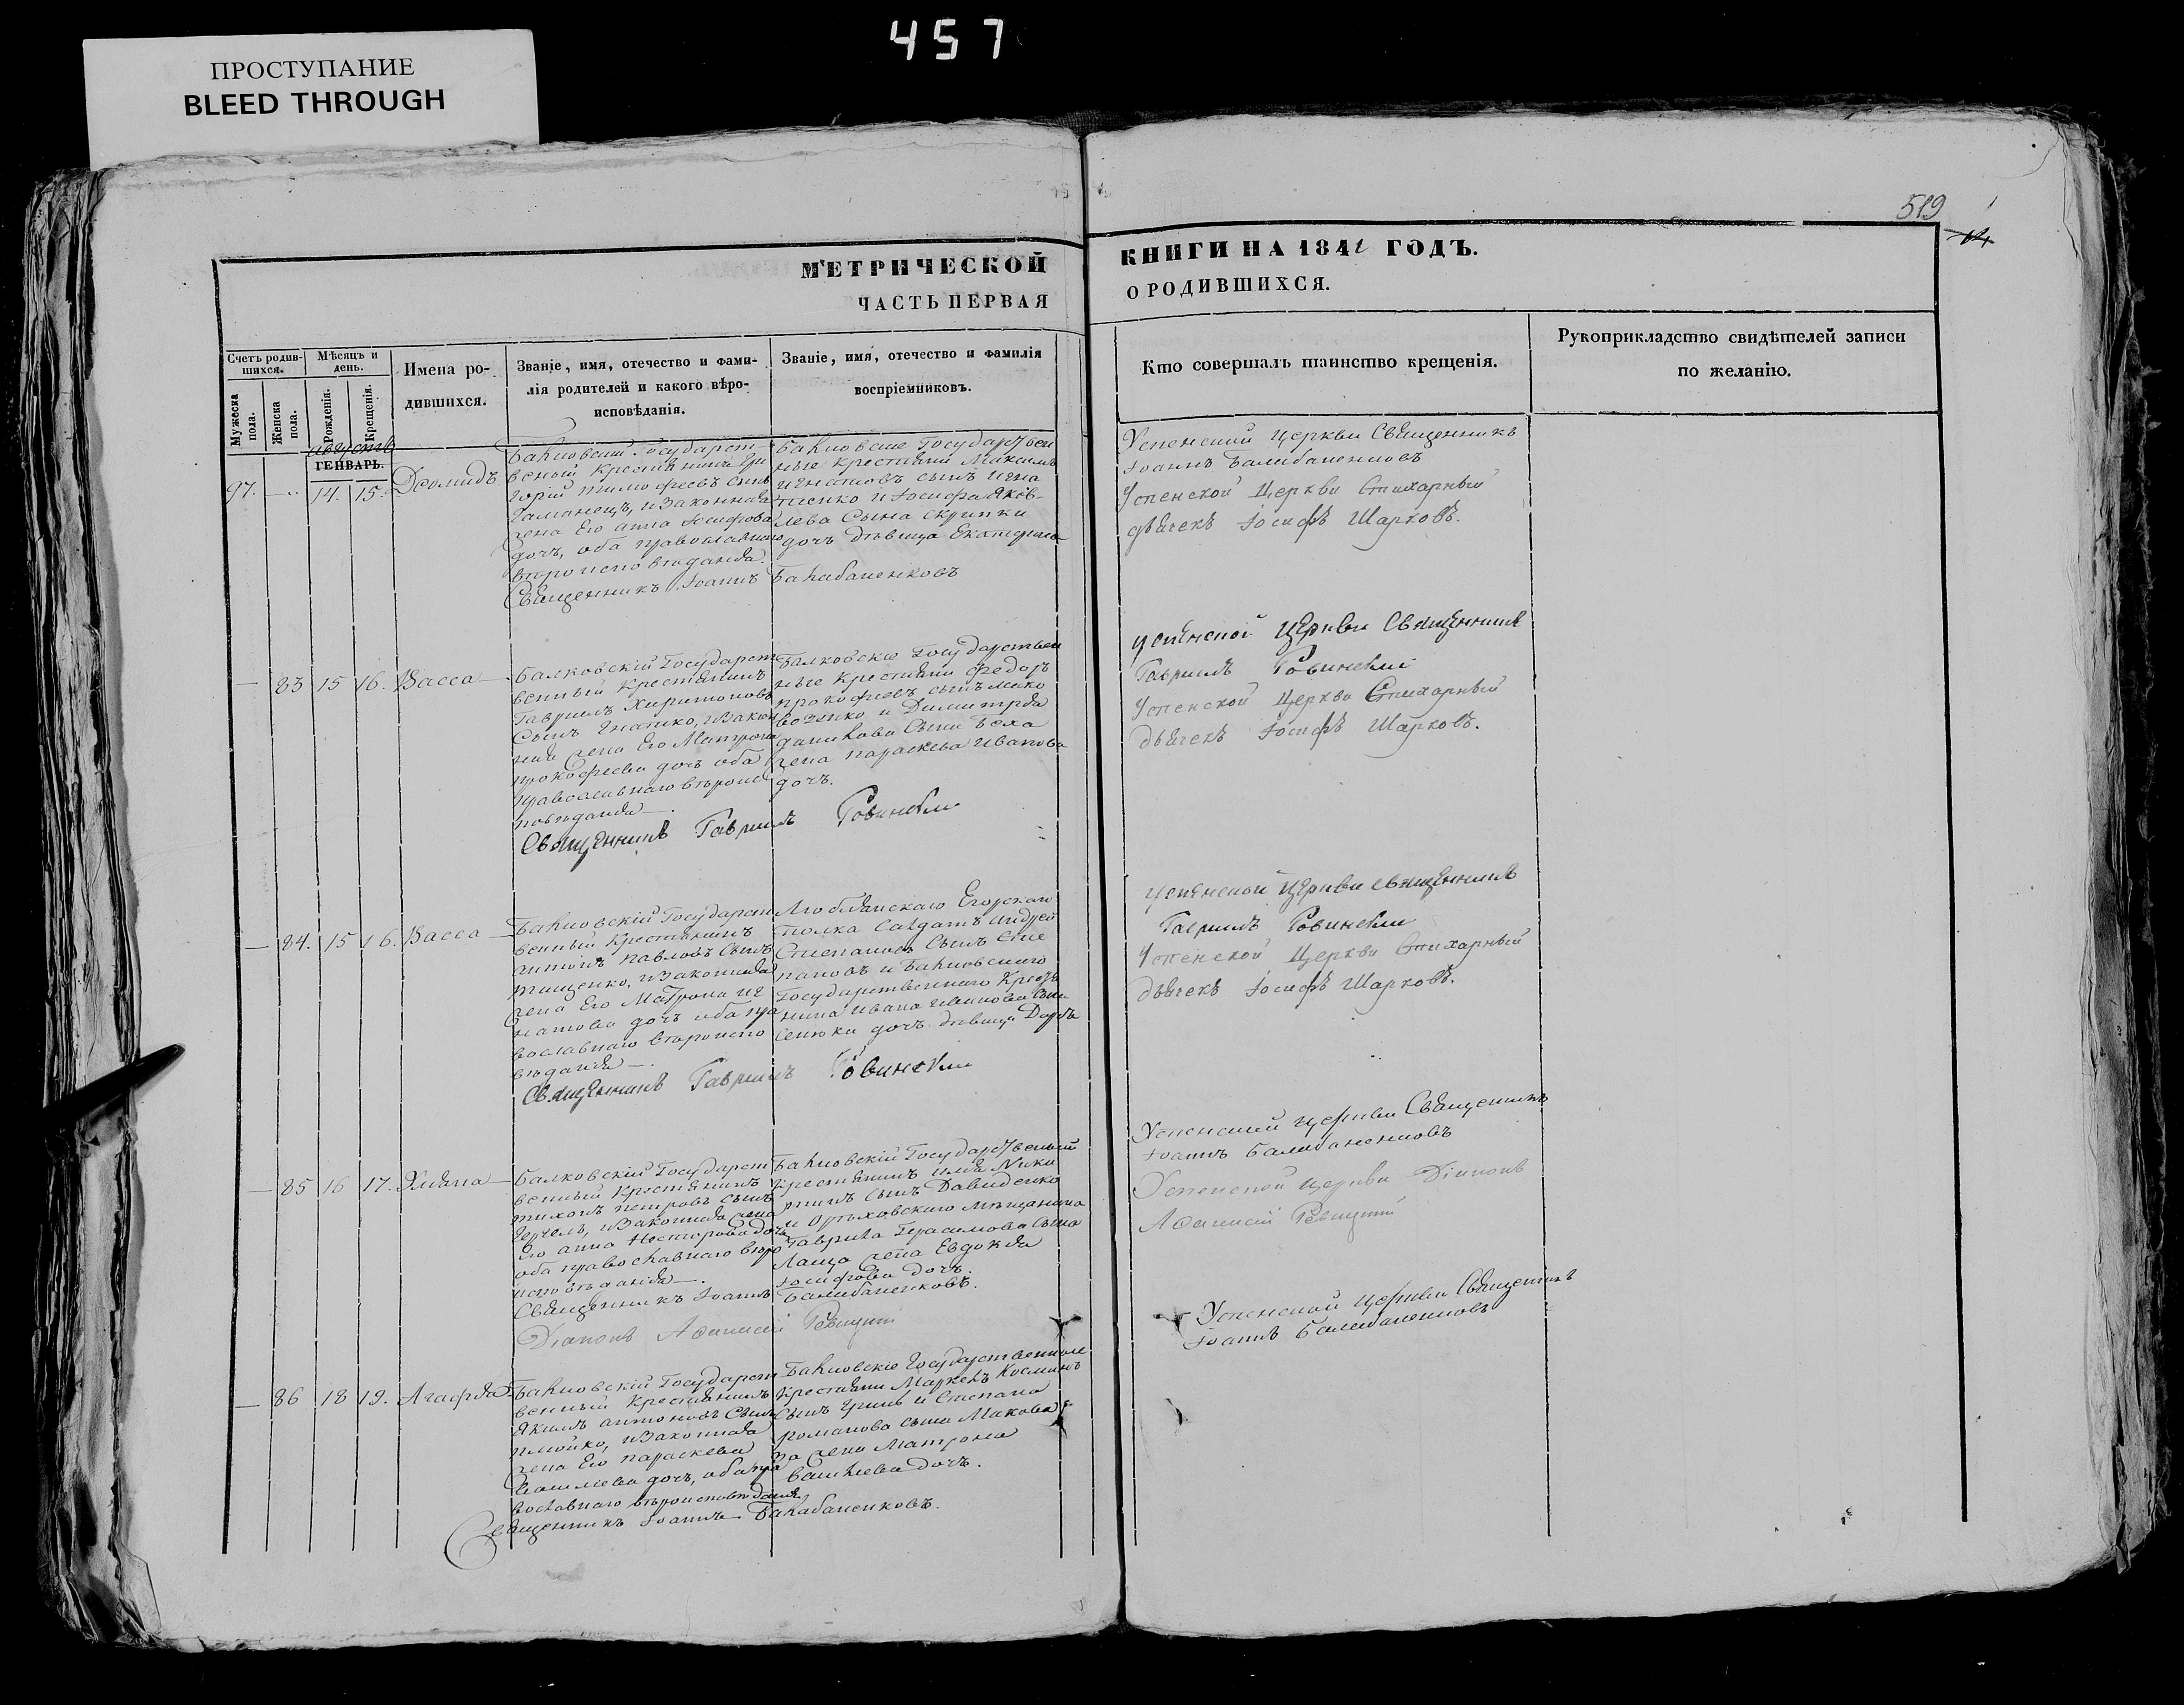 457
ПРОСТУПАНИЕ
BLEED THROUGH
519
14
МЕТРИЧЕСКОЙ
ЧАСТЬ ПЕРВАЯ
КНИГИ НА 1841 ГОДЪ.
О РОДИВШИХСЯ.
Счетъ родив-
шихся.
Мужеска пола.
Женска пола.
Мѣсяцъ и
день.
Рожденія.
Крещенія.
Имена ро-
дившихся.
Званіе, имя, отечество и фами-
лія родителей и какого вѣро-
исповѣданія.
Званіе, имя, отечество и фамилія
воспріемниковъ.
Кто совершалъ таинство крещенія.
Рукоприкладство свидѣтелей записи
по желанію.
августъ
ГЕНВАРЬ.
97. — 14. 15. Діомидъ
Балковскій Государст-
венный Крестьянинъ Гри
горій Тимофеевъ Сынъ
и Законная
жена Его анна Іосифова
дочъ, оба православнаго
вѣроисповѣданія.
Священникъ Іоаннъ Балабаненковъ
Балковские Государствен
ные Крестьяни Максимъ
Игнатовъ сынъ Игна
тенко и Іосифа Яков-
лева Сына Скрипки
дочъ дѣвица Екатерина
Успенской Церкви Священникъ
Іоаннъ Балабаненковъ
Успенской Церкви Стихарный
дьячекъ Іосифъ Шарковъ.
— 83 15 16. Васса
Балковскій Государст
венный Крестьянинъ
Гавріилъ Харитоновъ
Сынъ Гнатко, и Закон
ная жена Его Матрона
Прокофиева дочъ оба
православнаго вѣроис
повѣданія —.
Священникъ Гавріилъ Ровинскій
Балковские Государствен
ные Крестьяни Федоръ
Прокофиевъ сынъ
и Димитрія
Данилова Сына
жена Параскева Иванова
дочъ.
Успенской Церкви Священникъ
Гавріилъ Ровинскій
Успенской Церкви Стихарный
дьячекъ Іосифъ Шарковъ.
— 84. 15 16. Васса
Балковскій Государст
венный Крестьянинъ
Антонъ Павловъ Сынъ
Тищенко, и Законная
жена Его Матрона Иг
натова дочъ оба пра
вославнаго вѣроиспо
вѣданія —.
Священникъ Гавріилъ Ровинскій
Егорскаго
полка Салдатъ Андрей
Степановъ Сынъ Сте
пановъ и Балковскаго
Государственнаго Крестья
нина Ивана Иванова Сына
Сенюки дочъ дѣвица Дарья
Успенской Церкви Священникъ
Гавріилъ Ровинскій
Успенской Церкви Стихарный
дьячекъ Іосифъ Шарковъ.
— 85 16 17. Уліяна
Балковскій Государст
венный Крестьянинъ
Тихонъ Петровъ сынъ
и Законная жена
Его анна Нестерова дочъ
оба православнаго вѣро
исповѣданія —.
Священникъ Іоаннъ Балабаненковъ.
Діаконъ Афанасій
Балковскій Государственный
Крестьянинъ Илья Ники
тинъ сынъ Давиденко
и Орѣховскаго Мѣщанина
Гаврила Герасимова Сына
Лащо жена Евдокія
Іосифова дочъ.
Успенской Церкви Священникъ
Іоаннъ Балабаненковъ
Успенской Церкви Діаконъ
Афанасій
— 86 18 19. Агафія
Балковскій Государст
венный Крестьянинъ
Якимъ антоновъ Сынъ
и Законная
жена Его Параскева
дочъ, оба пра
вославнаго вѣроисповѣданія
Священникъ Іоаннъ Балабаненковъ.
Балковские Государственные
Крестьяни Маркелъ Косминъ
Сынъ Гринь и Степана
Романова сына
жена Матрона
Васильева дочъ.
Успенской Церкви Священникъ
Іоаннъ Балабаненковъ